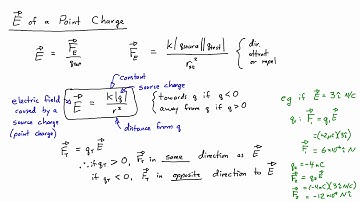 E of a Point Charge
E = F_E / q_test
F_E = k|q_source||q_test| / r_st² { dir. attract or repel
constant
source charge
electric field caused by a source charge (point charge)
E = k|q| / r² { towards q if q < 0
away from q if q > 0
distance from q
F_T = q_T E
∴ if q_T > 0, F_T in same direction as E
if q_T < 0, F_T in opposite direction to E
eg if E = 3î N/C